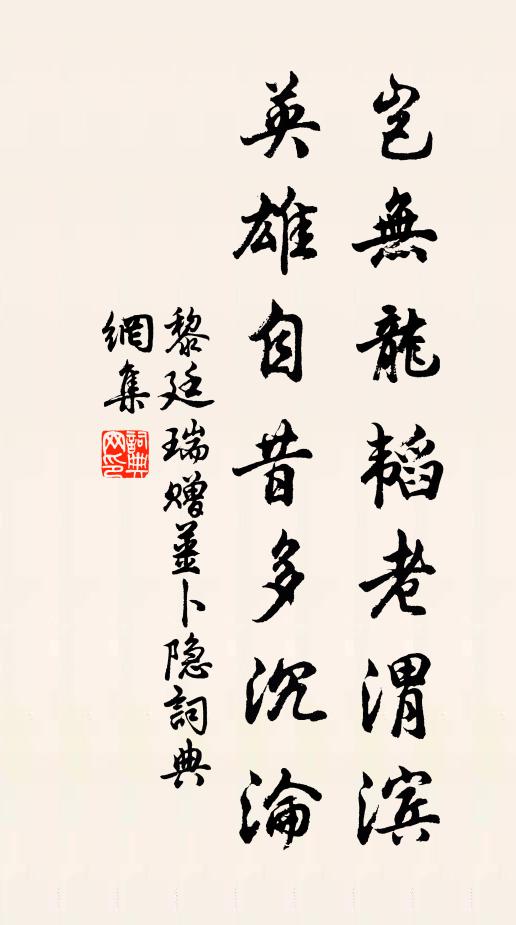 岂無龍韬老渭滨
英雄自昔多沉淪
黎廷瑞赠薑卜隐詞典
網集
詞典
网印